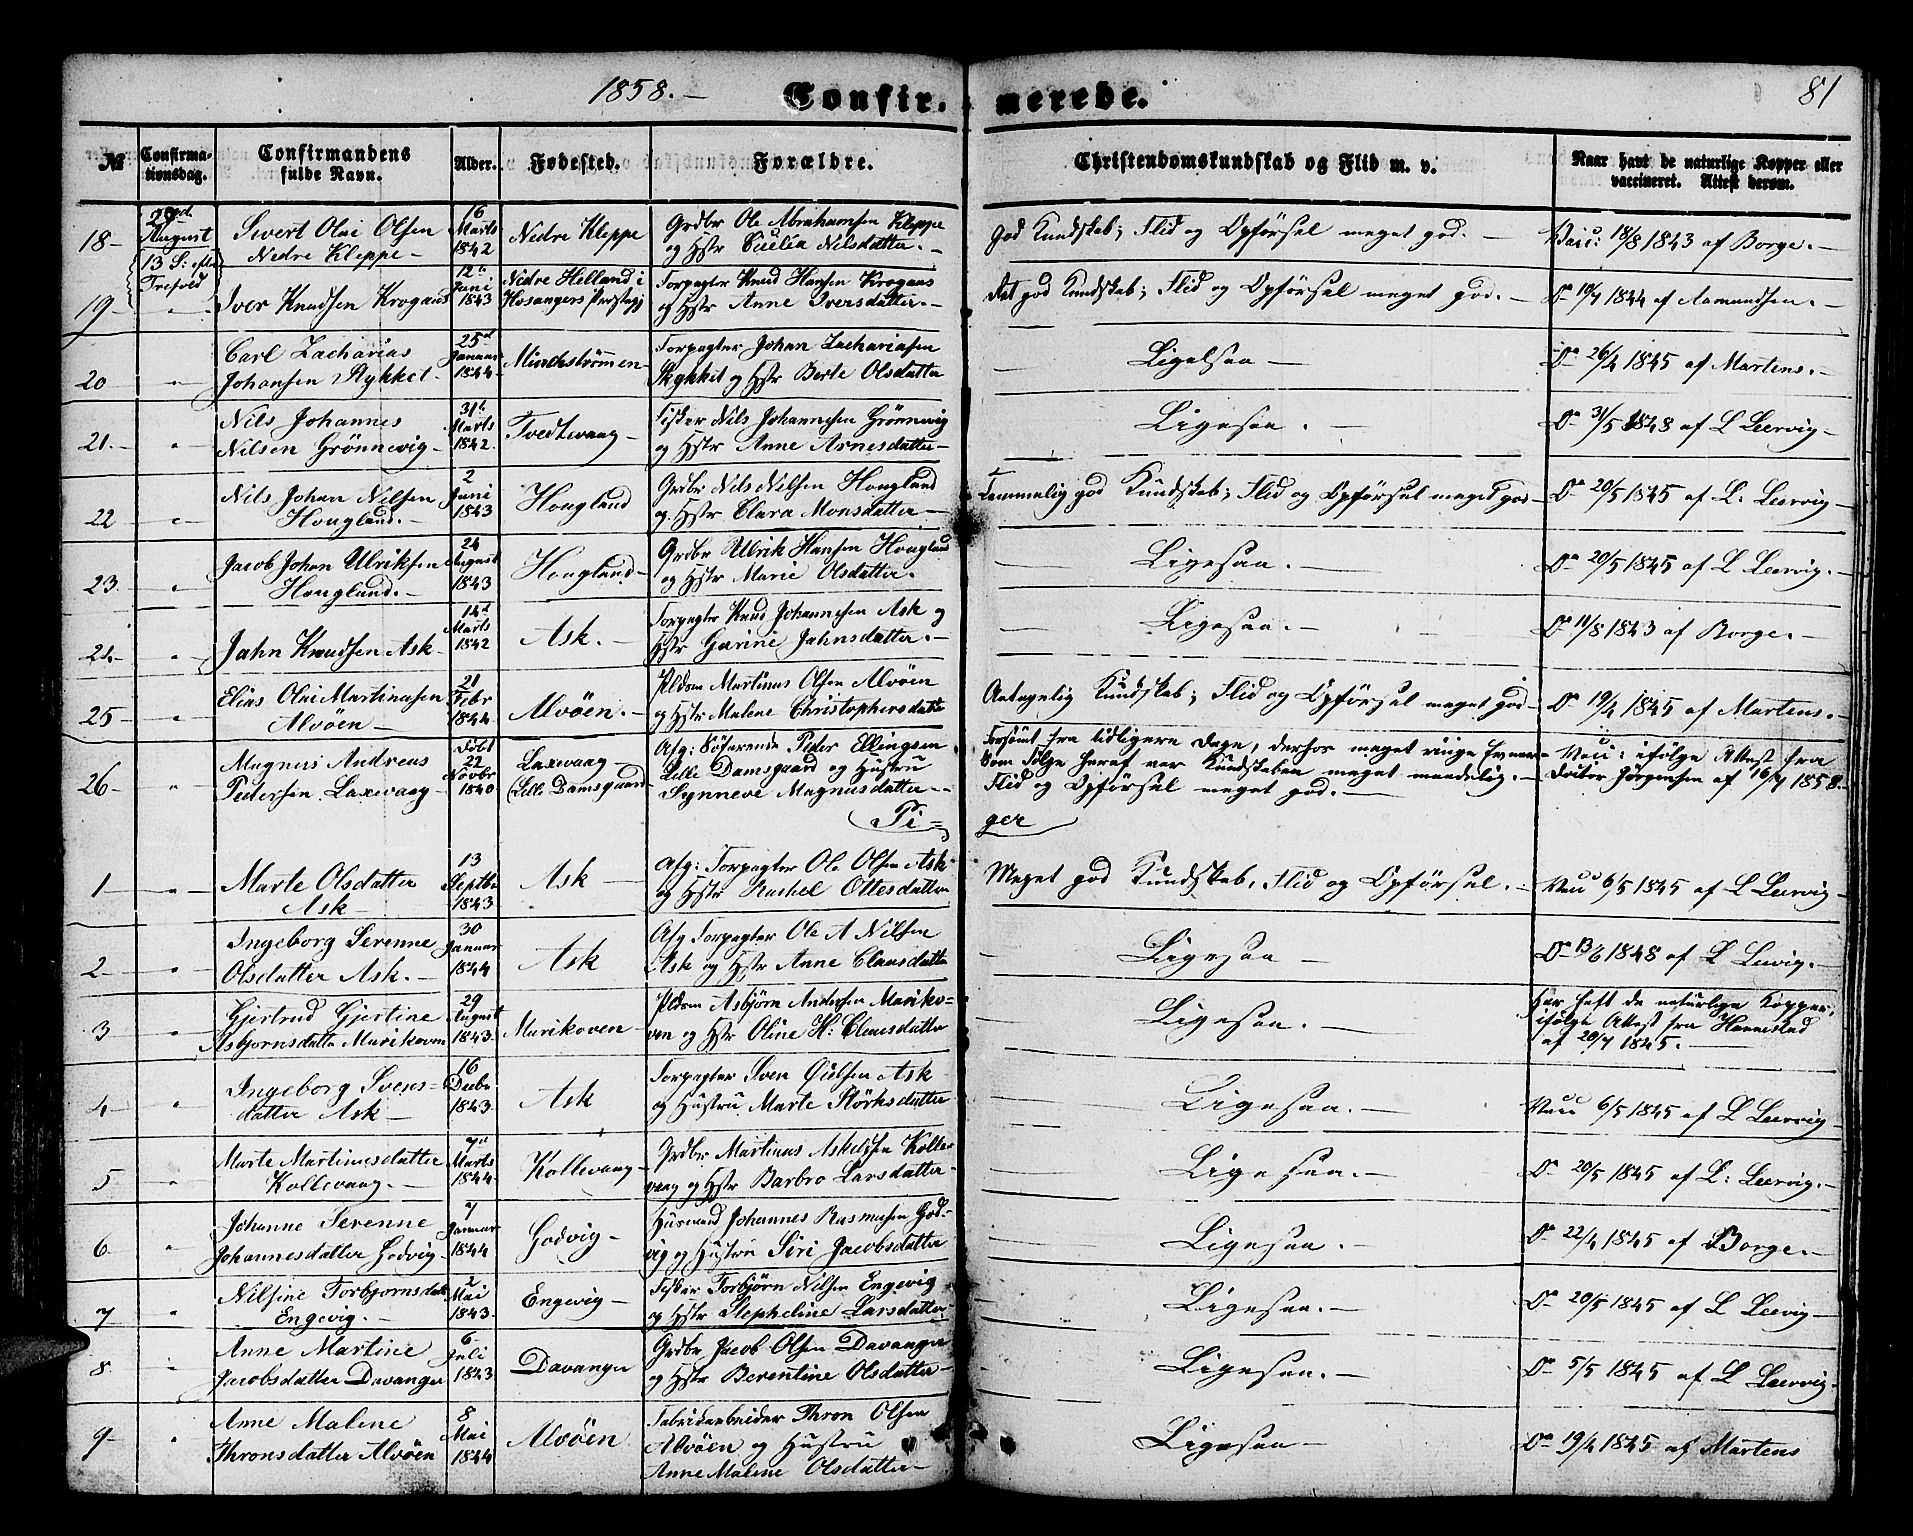 1858.-
Confirmerede.
81
№
Confirmationsdag.
Confirmandens fulde Navn.
Alder.
Fødested.
Forældre.
Christendomskundskab og Flid m. v.
Naar havt de naturlige Kopper eller vaccineret. Attest derom.
29de August 13 S: efter Trefold
18- Sivert Olai Olsen Nedre Kleppe- 16 Marts 1842 Nedre Kleppe Grdbr Ole Abrahamsen Kleppe og Hstr Cicilia Nilsdatter.- God Kundskab; Flid og Opførsel meget god.- Vacc: 18/8 1843 af Borge.-
19- " Iver Knudsen Krogaas 12te Juni 1843 Nedre Helland i Hosangers Præstegj Forpagter Knud Hansen Krogaas og Hstr Anne Iversdatter.- Ret god Kundskab; Flid og Opførsel meget god.- Do 10/7 1844 af Aamundsen.-
20 " Carl Zacharias Johansen Stykket- 25de Januar 1844 Mindestrømmen- Forpagter Johan Zachariasen Stykket og Hstr Berte Olsdatter Ligesaa- Do 26/4 1845 af Martens.-
21.- " Nils Johannes Nilsen Grønnevig- 31te Marts 1842. Tvedtevaag- Fisker Nils Johannesen Grønnevig og Hstr Anne Arnesdatter- Ligesaa.- Do 31/5 1843 af L Leervig-
22 " Nils Johan Nilsen Hougland.- 2 Juni 1843 Hougland Grdbr Nils Nilsen Hougland og Hstr Clara Monsdatter- Temmelig god Kundskab; Flid og Opførsel meget god- Do 20/5 1845 af L: Leervig-
23 " Jacob Johan Ulriksen Hougland.- 24 August 1843 Hougland- Grdbr Ulrik Hansen Hougland og Hstr Marie Olsdatter. Ligesaa.- Do 20/5 1845 af L Leervig.-
24.- " Jahn Knudsen Ask- 14de Marts 1842 Ask.- Forpagter Knud Johannesen Ask og Hstr Gurine Jahnsdatter.- Ligesaa.- Do 11/8 1843 af Borge.-
25 " Elias Olai Martinusen Alvöen- 21 Febr 1844 Alvöen.- Pldsm Martinus Olsen Alvöen og Hstr Malene Christophersdatter Antagelig Kundskab; Flid og Opførsel meget god- Do 19/4 1845 af Martens.-
26- " Magnus Andreas Pedersen Laxevaag- Døbt 22 Novbr 1840 Laxevaag- (Lille Damsgaard Afg: Søfarende Peder Ellingsen Lille Damsgaard og Hustru Synneve Magnusdatter-- Forsömt fra tidligere Dage, derfor meget ringe Evner Som Følge heraf var Kundskaben meget maadelig.- Flid og Opførsel meget god.- Vacc: ifölge Attest fra Doctor Jörgensen af 16/7 1858.-
Pi=ger
1 " Marte Olsdatter Ask- 13 Septbr 1843 Ask- Afg: Forpagter Ole Olsen Ask og Hstr Rachel Ottesdatter Meget god Kundskab, Flid og Opførsel.- Vacc 6/5 1845 af L Leervig-
2- " Ingeborg Serenne Olsdatter Ask.- 30 Januar 1844 Ask Afg Forpagter Ole A Nilsen Ask og Hstr Anne Clausdatter Ligesaa- Do 13/6 1848 af L Leervig.-
3 " Gjertrud Gjertine Asbjornsdatter Marikoven 29 August 1843. Marikoven- Pldsm Asbjørn Andersen Marikoven og Hstr Oline H: Clausdatter Ligesaa.- Har haft de naturlige Kopper, ifølge Attest fra Hannestad af 20/7 1845.-
4- " Ingeborg Svensdatter Ask- 16 Decbr 1843. Ask Forpagter Sven Ask og Hustru Marte Størksdatter Ligesaa.- Vacc 6/5 1845 af L Leervig-
5 " Marte Martinusdatter Kollevaag.- 7de Marts 1844 Kollevaag- Grdbr Martinus Askelsen Kollevaag og Hstr Barbro Larsdatter- Ligesaa.- Do 20/5 1845 af L: Leervig.-
6 " Johanne Serenne Johannesdatter Godvig- 7 Januar 1844 Godvig- Husmand Johannes Rasmusen Godvig og Hustru Siri Jacobsdatter Ligesaa. Do 22/4 1845 af Borge.-
7 " Nilsine Torbjornsdatter Engevig.- Mai 1843. Engevig- Fisker Torbjørn Nilsen Engevig og Hstr Stepheline Larsdatter- Ligesaa.- Do 20/5 1845 af L Leervig-
8 " Anne Martine Jacobsdatter Davanger 6 Juli 1843 Davanger Grdbr Jacob Olsen Davanger og Hstr Berentine Olsdatter- Ligesaa.- Do 5/5 1845 af L Leervig-
9- " Anne Malene Thronsdatter Alvöen 8 Mai 1844 Alvöen Fabrikarbeider Thron Olsen Alvöen og Hustru Anne Malene Olsdatter- Ligesaa- Do 19/4 1845 af Martens